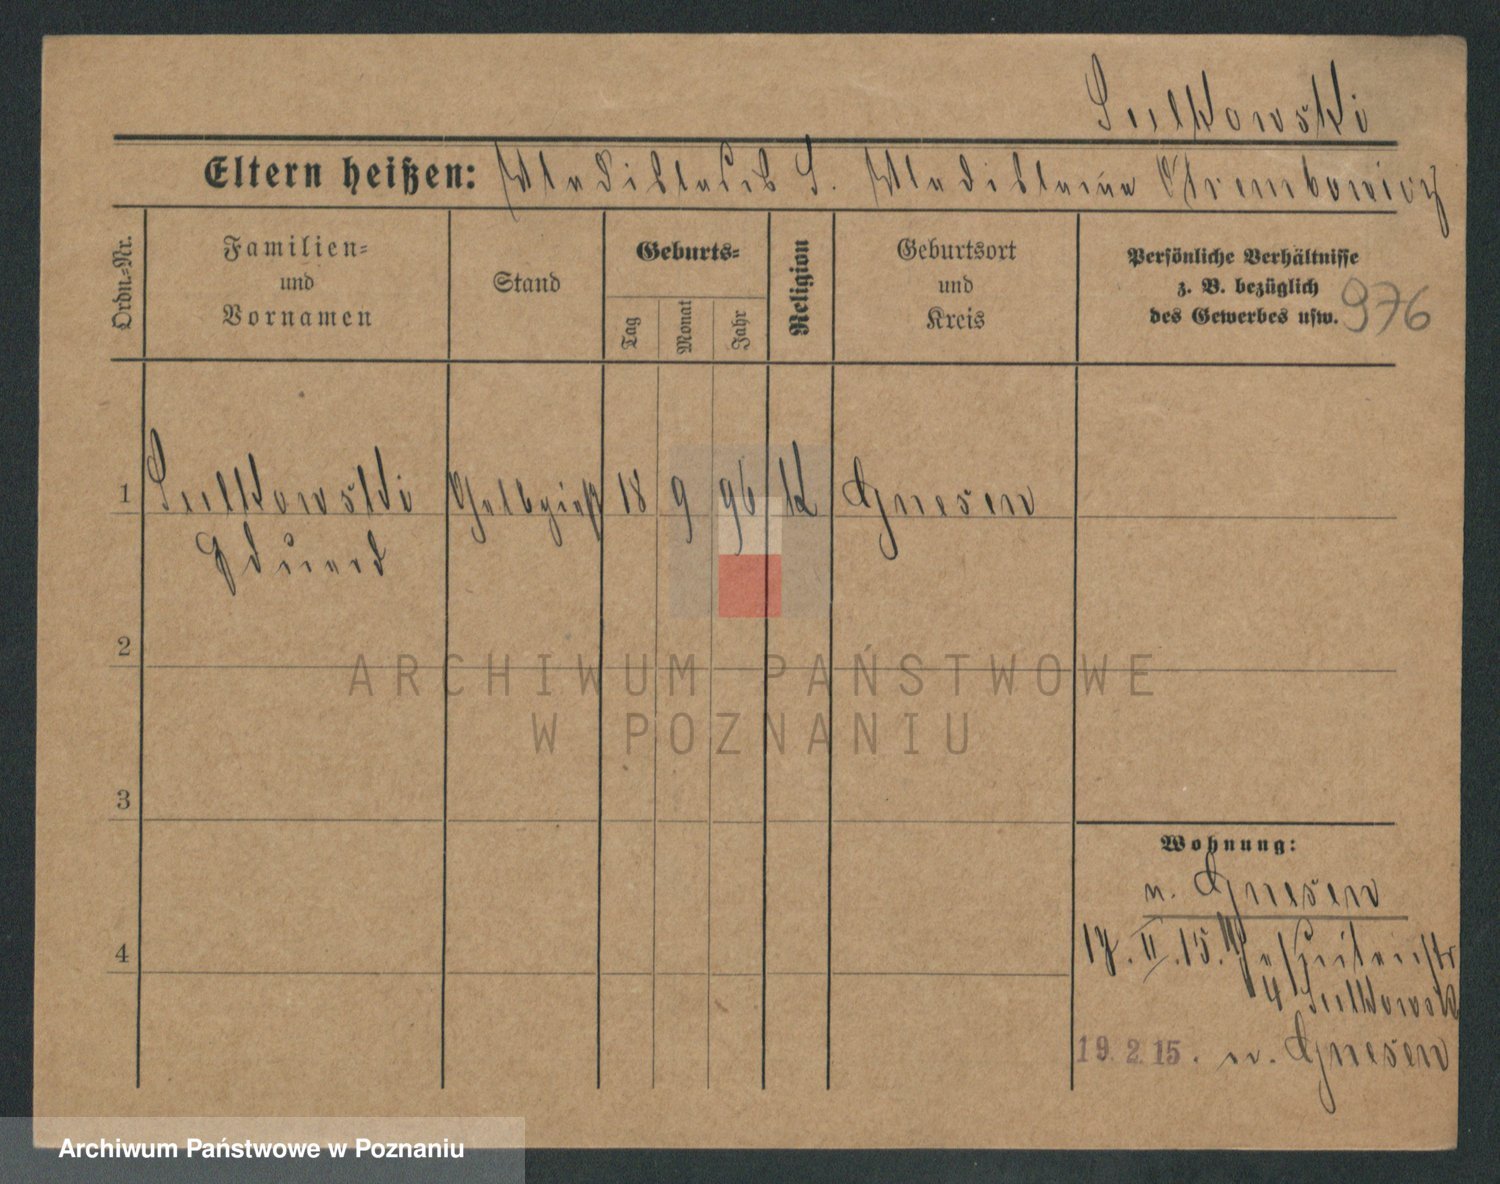 Sulkowski
Eltern heißen: Wladislaus S. Wladislawa Strembowicz
Ordn.-Nr.
Familien-
und
Vornamen
Stand
Geburts-
Tag
Monat
Jahr
Religion
Geburtsort
und
Kreis
Persönliche Verhältnisse
z. B. bezüglich
des Gewerbes usw.
976
1 Sulkowski Gelbgieß 18 9 96 K Gnesen
Eduard
2
ARCHIWUM PAŃSTWOWE
W POZNANIU
3
4
Wohnung:
n. Gnesen
17. II. 15.
4 Sulkowski
19. 2. 15. n. Gnesen
Archiwum Państwowe w Poznaniu